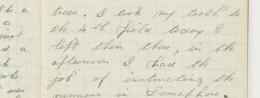 trees. I took my teeth to
the 4th Field today &
left them there, in the
afternoon I had the
job of instructing the
in Semaphore.